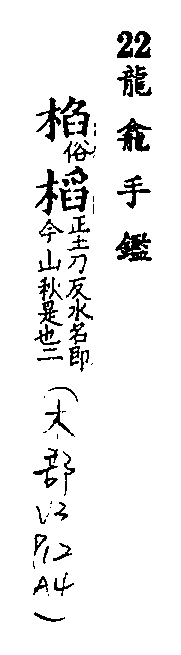 22龍龕手鑑
𣐤俗
槄正土刀反水名即今山秋是也二(木部 V2 P12 A4)